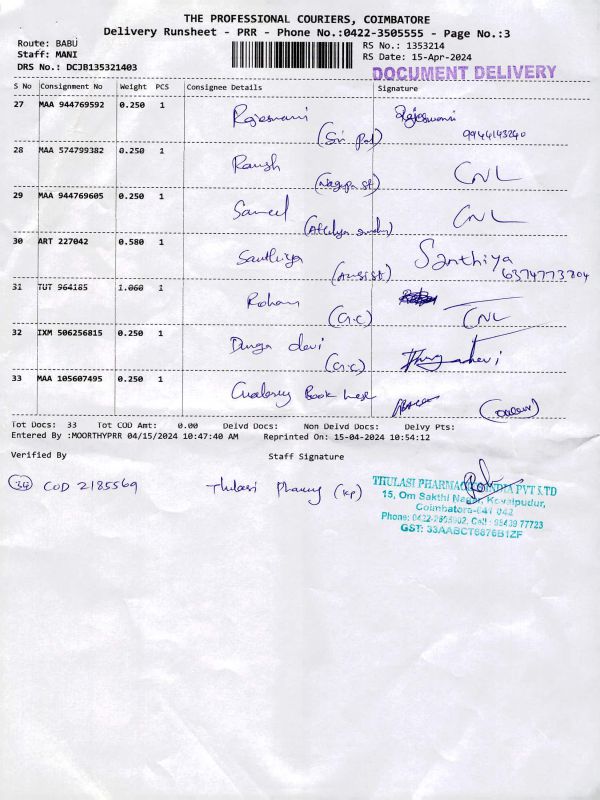 THE PROFESSIONAL COURIERS, COIMBATORE
Delivery Runsheet - PRR - Phone No.:0422-3505555 - Page No.:3
Route: BABU
Staff: MANI
DRS No.: DCJB135321403
RS No.: 1353214
RS Date: 15-Apr-2024
DOCUMENT DELIVERY
S No Consignment No Weight PCS Consignee Details Signature
27 MAA 944769592 0.250 1 Rajeswari Rajeswari
9944143240
28 MAA 574799382 0.250 1 CNL
29 MAA 944769605 0.250 1 CNL
30 ART 227042 0.580 1 Santhiya Santhiya
6374773804
31 TUT 964185 1.060 1 Rohan
(G.C) CNL
32 IXM 506256815 0.250 1 Durga devi
(G.C)
33 MAA 105607495 0.250 1 Book
Tot Docs: 33 Tot COD Amt: 0.00 Delvd Docs: Non Delvd Docs: Delvy Pts:
Entered By :MOORTHYPRR 04/15/2024 10:47:40 AM Reprinted On: 15-04-2024 10:54:12
Verified By Staff Signature
34 COD 2185569 Thulasi Pharmcy (KP)
THULASI PHARMACIES INDIA PVT LTD
15, Om Sakthi Nagar, Kovaipudur,
Coimbatore-641 042
Phone: 0422-2605902, Cell : 95439 77723
GST: 33AABCT6876B1ZF